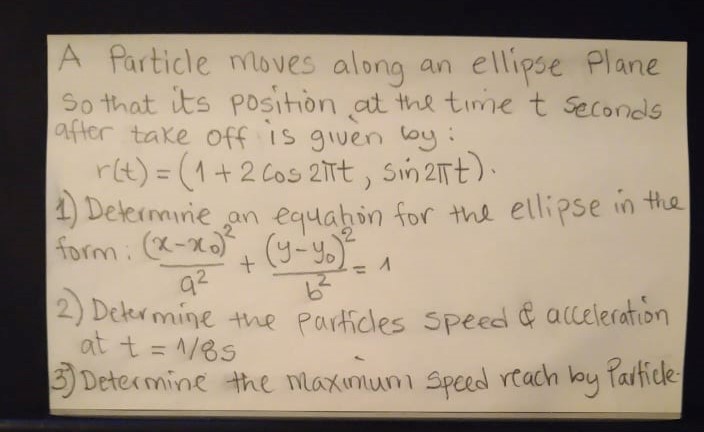 A Particle moves along an ellipse Plane
so that its position at the time t seconds
after take off is given by:
r(t) = (1 + 2 cos 2πt, sin 2πt).
1) Determine an equation for the ellipse in the
form: (x-x₀)²/a² + (y-y₀)²/b² = 1
2) Determine the particles speed & acceleration
at t = 1/8s
3) Determine the maximum speed reach by Particle.